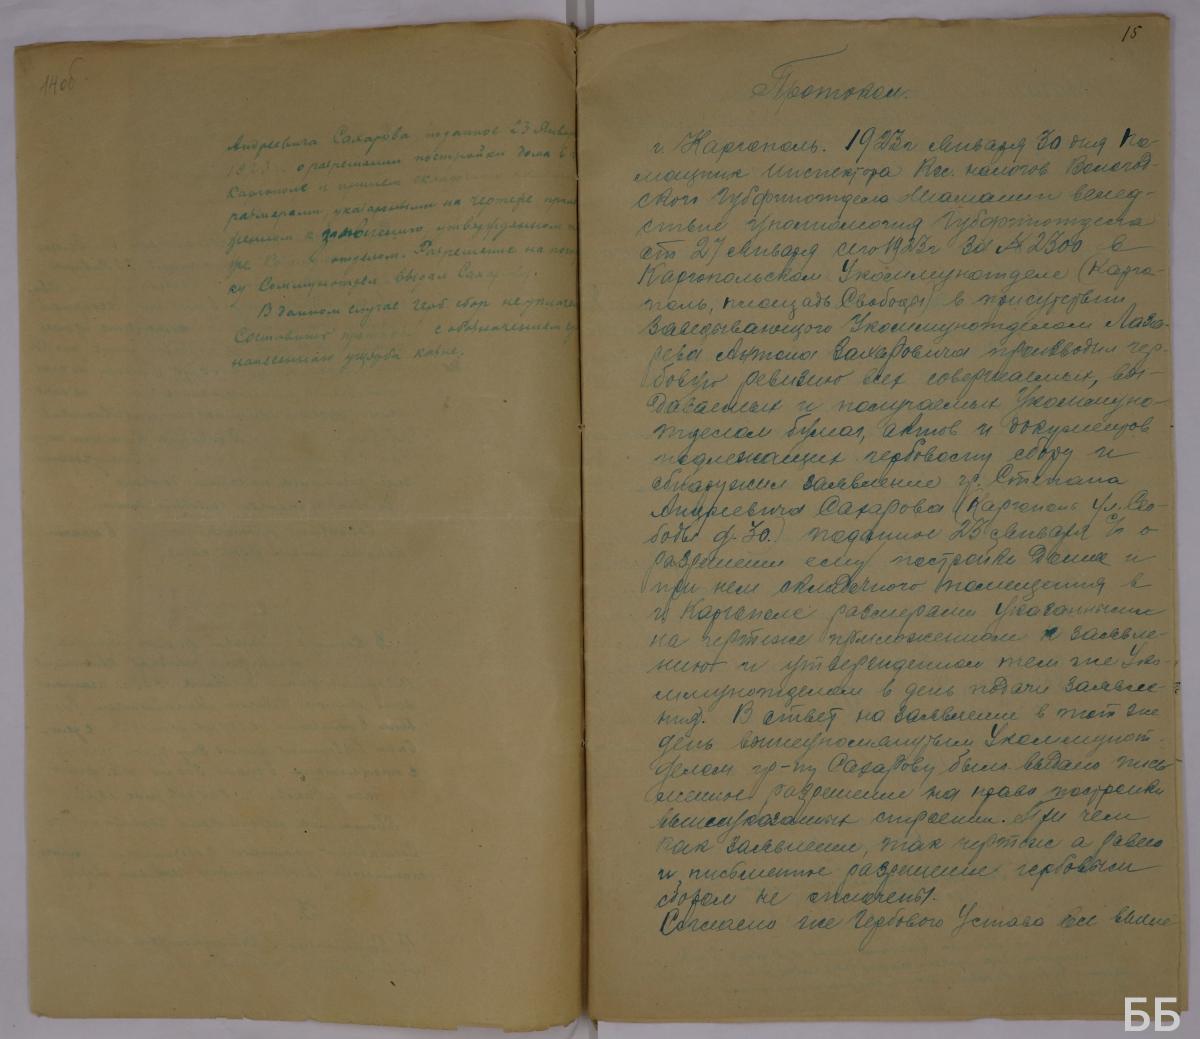 14об
Андреевича Сахарова поданное 23 Января
1923 о разрешении постройки дома в г.
Каргополе и при нем складочного
размерами указанными на чертеже прило
женном к заявлению утвержденном
отделом. Разрешение на пост
ку Коммунотдел выдал Сахарову.
В данном случае герб сбор не уплачен
Составить протокол с обозначением
нанесенного ущерба казне.
15
Протокол.
г. Каргополь. 1923г Января 30 дня По-
мощник Инспектора Кос. налогов Вологод-
ского Губфинотдела вслед-
ствие Губфинотдела
от 27 Января сего 1923г за № 2300 в
Каргопольском Укоммунотделе (Карго-
поль, площадь Свободы) в присутствии
Заведывающего Укоммунотделом Лаза-
рева Антона Захаровича производил гер-
бовую ревизию всех совершаемых, вы-
даваемых и получаемых Укоммуно-
тделом бумаг, актов и документов
подлежащих гербовому сбору и
обнаружил заявление гр. Степана
Андреевича Сахарова (Каргополь ул. Сво-
боды д. 30.) поданное 23 Января с/г о
разрешении ему постройки Дома и
при нем складочного помещения в
г. Каргополе размерами указанными
на чертеже приложенном к заявле-
нию и утвержденном тем же Уко-
ммунотделом в день подачи заявле-
ния. В ответ на заявление в тот же
день вышеупомянутым Укоммунот-
делом гр-ну Сахарову было выдано пись
менное разрешение на право постройки
вышеуказанных строений. При чем
как заявление, так чертеж а равно
и письменное разрешение гербовым
сбором не оплачены.
Согласно же Гербового Устава все выше
ББ